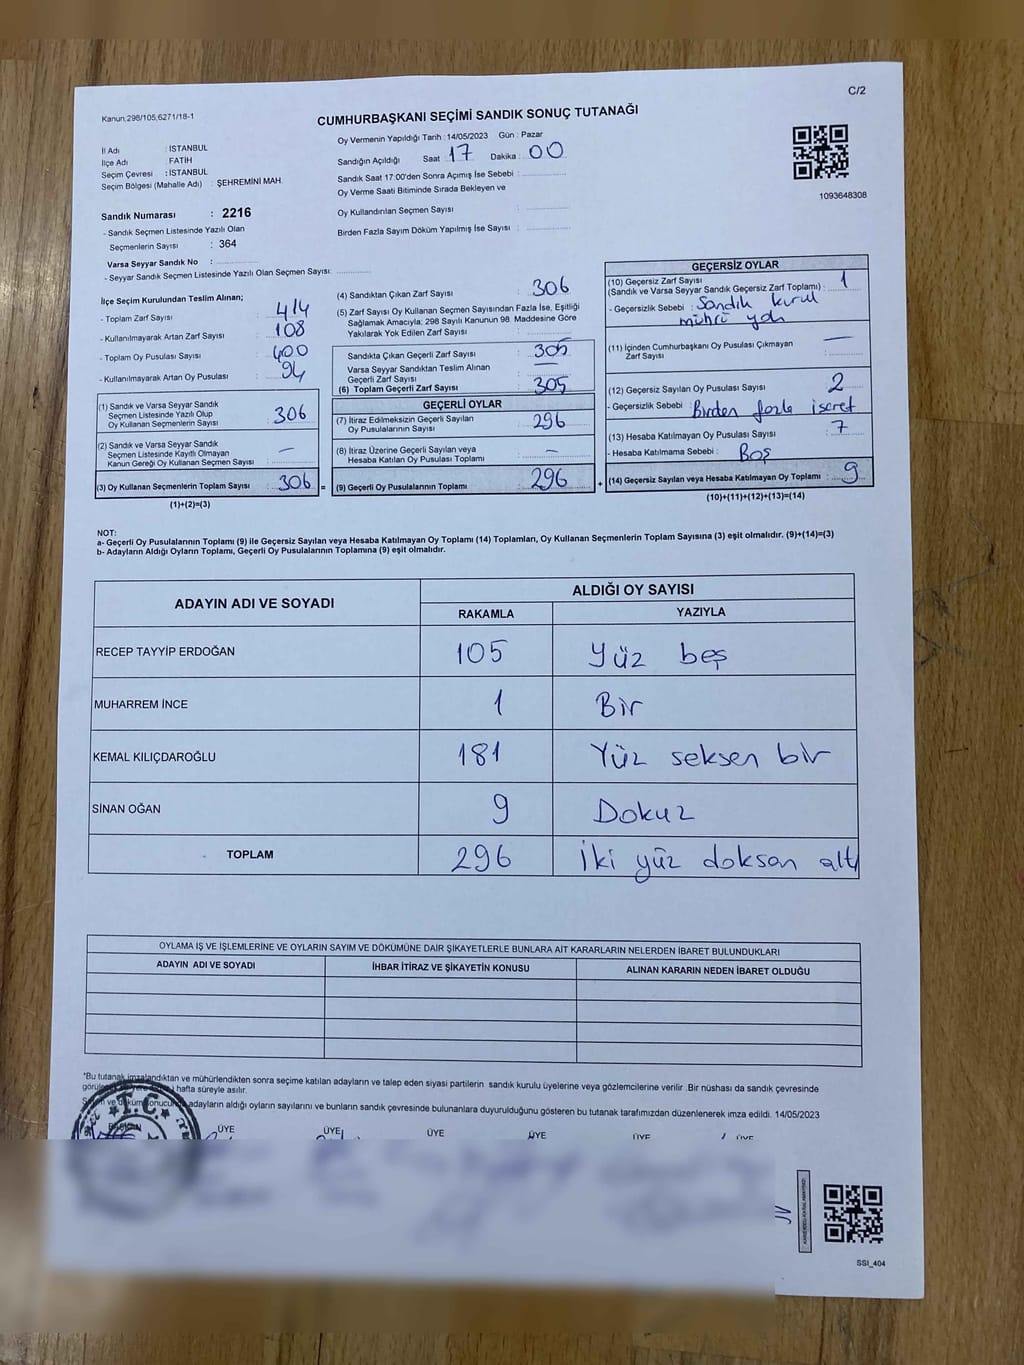 C/2
Kanun,298/105,6271/18-1
CUMHURBAŞKANI SEÇİMİ SANDIK SONUÇ TUTANAĞI
Oy Vermenin Yapıldığı Tarih : 14/05/2023 Gün : Pazar
İl Adı : İSTANBUL
İlçe Adı : FATİH
Seçim Çevresi : İSTANBUL
Seçim Bölgesi (Mahalle Adı) : ŞEHREMİNİ MAH.
Sandığın Açıldığı Saat : 17 Dakika : 00
Sandık Saat 17:00'den Sonra Açımış İse Sebebi :
Oy Verme Saati Bitiminde Sırada Bekleyen ve
Oy Kullandırılan Seçmen Sayısı :
Birden Fazla Sayım Döküm Yapılmış İse Sayısı :
1093648308
Sandık Numarası : 2216
- Sandık Seçmen Listesinde Yazılı Olan
Seçmenlerin Sayısı : 364
Varsa Seyyar Sandık No :
- Seyyar Sandık Seçmen Listesinde Yazılı Olan Seçmen Sayısı:
İlçe Seçim Kurulundan Teslim Alınan;
- Toplam Zarf Sayısı : 414
- Kullanılmayarak Artan Zarf Sayısı : 108
- Toplam Oy Pusulası Sayısı : 400
- Kullanılmayarak Artan Oy Pusulası : 94
(1) Sandık ve Varsa Seyyar Sandık
Seçmen Listesinde Yazılı Olup
Oy Kullanan Seçmenlerin Sayısı : 306
(2) Sandık ve Varsa Seyyar Sandık
Seçmen Listesinde Kayıtlı Olmayan
Kanun Gereği Oy Kullanan Seçmen Sayısı : —
(3) Oy Kullanan Seçmenlerin Toplam Sayısı : 306 =
(1)+(2)=(3)
(4) Sandıktan Çıkan Zarf Sayısı : 306
(5) Zarf Sayısı Oy Kullanan Seçmen Sayısından Fazla İse, Eşitliği
Sağlamak Amacıyla, 298 Sayılı Kanunun 98. Maddesine Göre
Yakılarak Yok Edilen Zarf Sayısı :
Sandıkta Çıkan Geçerli Zarf Sayısı : 305
Varsa Seyyar Sandıktan Teslim Alınan
Geçerli Zarf Sayısı : —
(6) Toplam Geçerli Zarf Sayısı : 305
GEÇERLİ OYLAR
(7) İtiraz Edilmeksizin Geçerli Sayılan
Oy Pusulalarının Sayısı : 296
(8) İtiraz Üzerine Geçerli Sayılan veya
Hesaba Katılan Oy Pusulası Toplamı : —
(9) Geçerli Oy Pusulalarının Toplamı : 296 +
GEÇERSİZ OYLAR
(10) Geçersiz Zarf Sayısı
(Sandık ve Varsa Seyyar Sandık Geçersiz Zarf Toplamı) : 1
- Geçersizlik Sebebi : Sandık kurul
mührü yok
(11) İçinden Cumhurbaşkanı Oy Pusulası Çıkmayan
Zarf Sayısı : —
(12) Geçersiz Sayılan Oy Pusulası Sayısı : 2
- Geçersizlik Sebebi : Birden fazla işaret
(13) Hesaba Katılmayan Oy Pusulası Sayısı : 7
- Hesaba Katılmama Sebebi : Boş
(14) Geçersiz Sayılan veya Hesaba Katılmayan Oy Toplamı : 9
(10)+(11)+(12)+(13)=(14)
NOT:
a- Geçerli Oy Pusulalarının Toplamı (9) ile Geçersiz Sayılan veya Hesaba Katılmayan Oy Toplamı (14) Toplamları, Oy Kullanan Seçmenlerin Toplam Sayısına (3) eşit olmalıdır. (9)+(14)=(3)
b- Adayların Aldığı Oyların Toplamı, Geçerli Oy Pusulalarının Toplamına (9) eşit olmalıdır.
ADAYIN ADI VE SOYADI ALDIĞI OY SAYISI
RAKAMLA YAZIYLA
RECEP TAYYİP ERDOĞAN 105 Yüz beş
MUHARREM İNCE 1 Bir
KEMAL KILIÇDAROĞLU 181 Yüz seksen bir
SİNAN OĞAN 9 Dokuz
TOPLAM 296 İki yüz doksan altı
OYLAMA İŞ VE İŞLEMLERİNE VE OYLARIN SAYIM VE DÖKÜMÜNE DAİR ŞİKAYETLERLE BUNLARA AİT KARARLARIN NELERDEN İBARET BULUNDUKLARI
ADAYIN ADI VE SOYADI İHBAR İTİRAZ VE ŞİKAYETİN KONUSU ALINAN KARARIN NEDEN İBARET OLDUĞU
*Bu tutanak imzalandıktan ve mühürlendikten sonra seçime katılan adayların ve talep eden siyasi partilerin sandık kurulu üyelerine veya gözlemcilerine verilir .Bir nüshası da sandık çevresinde
hafta süreyle asılır.
adayların aldığı oyların sayılarını ve bunların sandık çevresinde bulunanlara duyurulduğunu gösteren bu tutanak tarafımızdan düzenlenerek imza edildi. 14/05/2023
T.C.
BAŞKAN ÜYE ÜYE ÜYE ÜYE ÜYE ÜYE
SSI_404